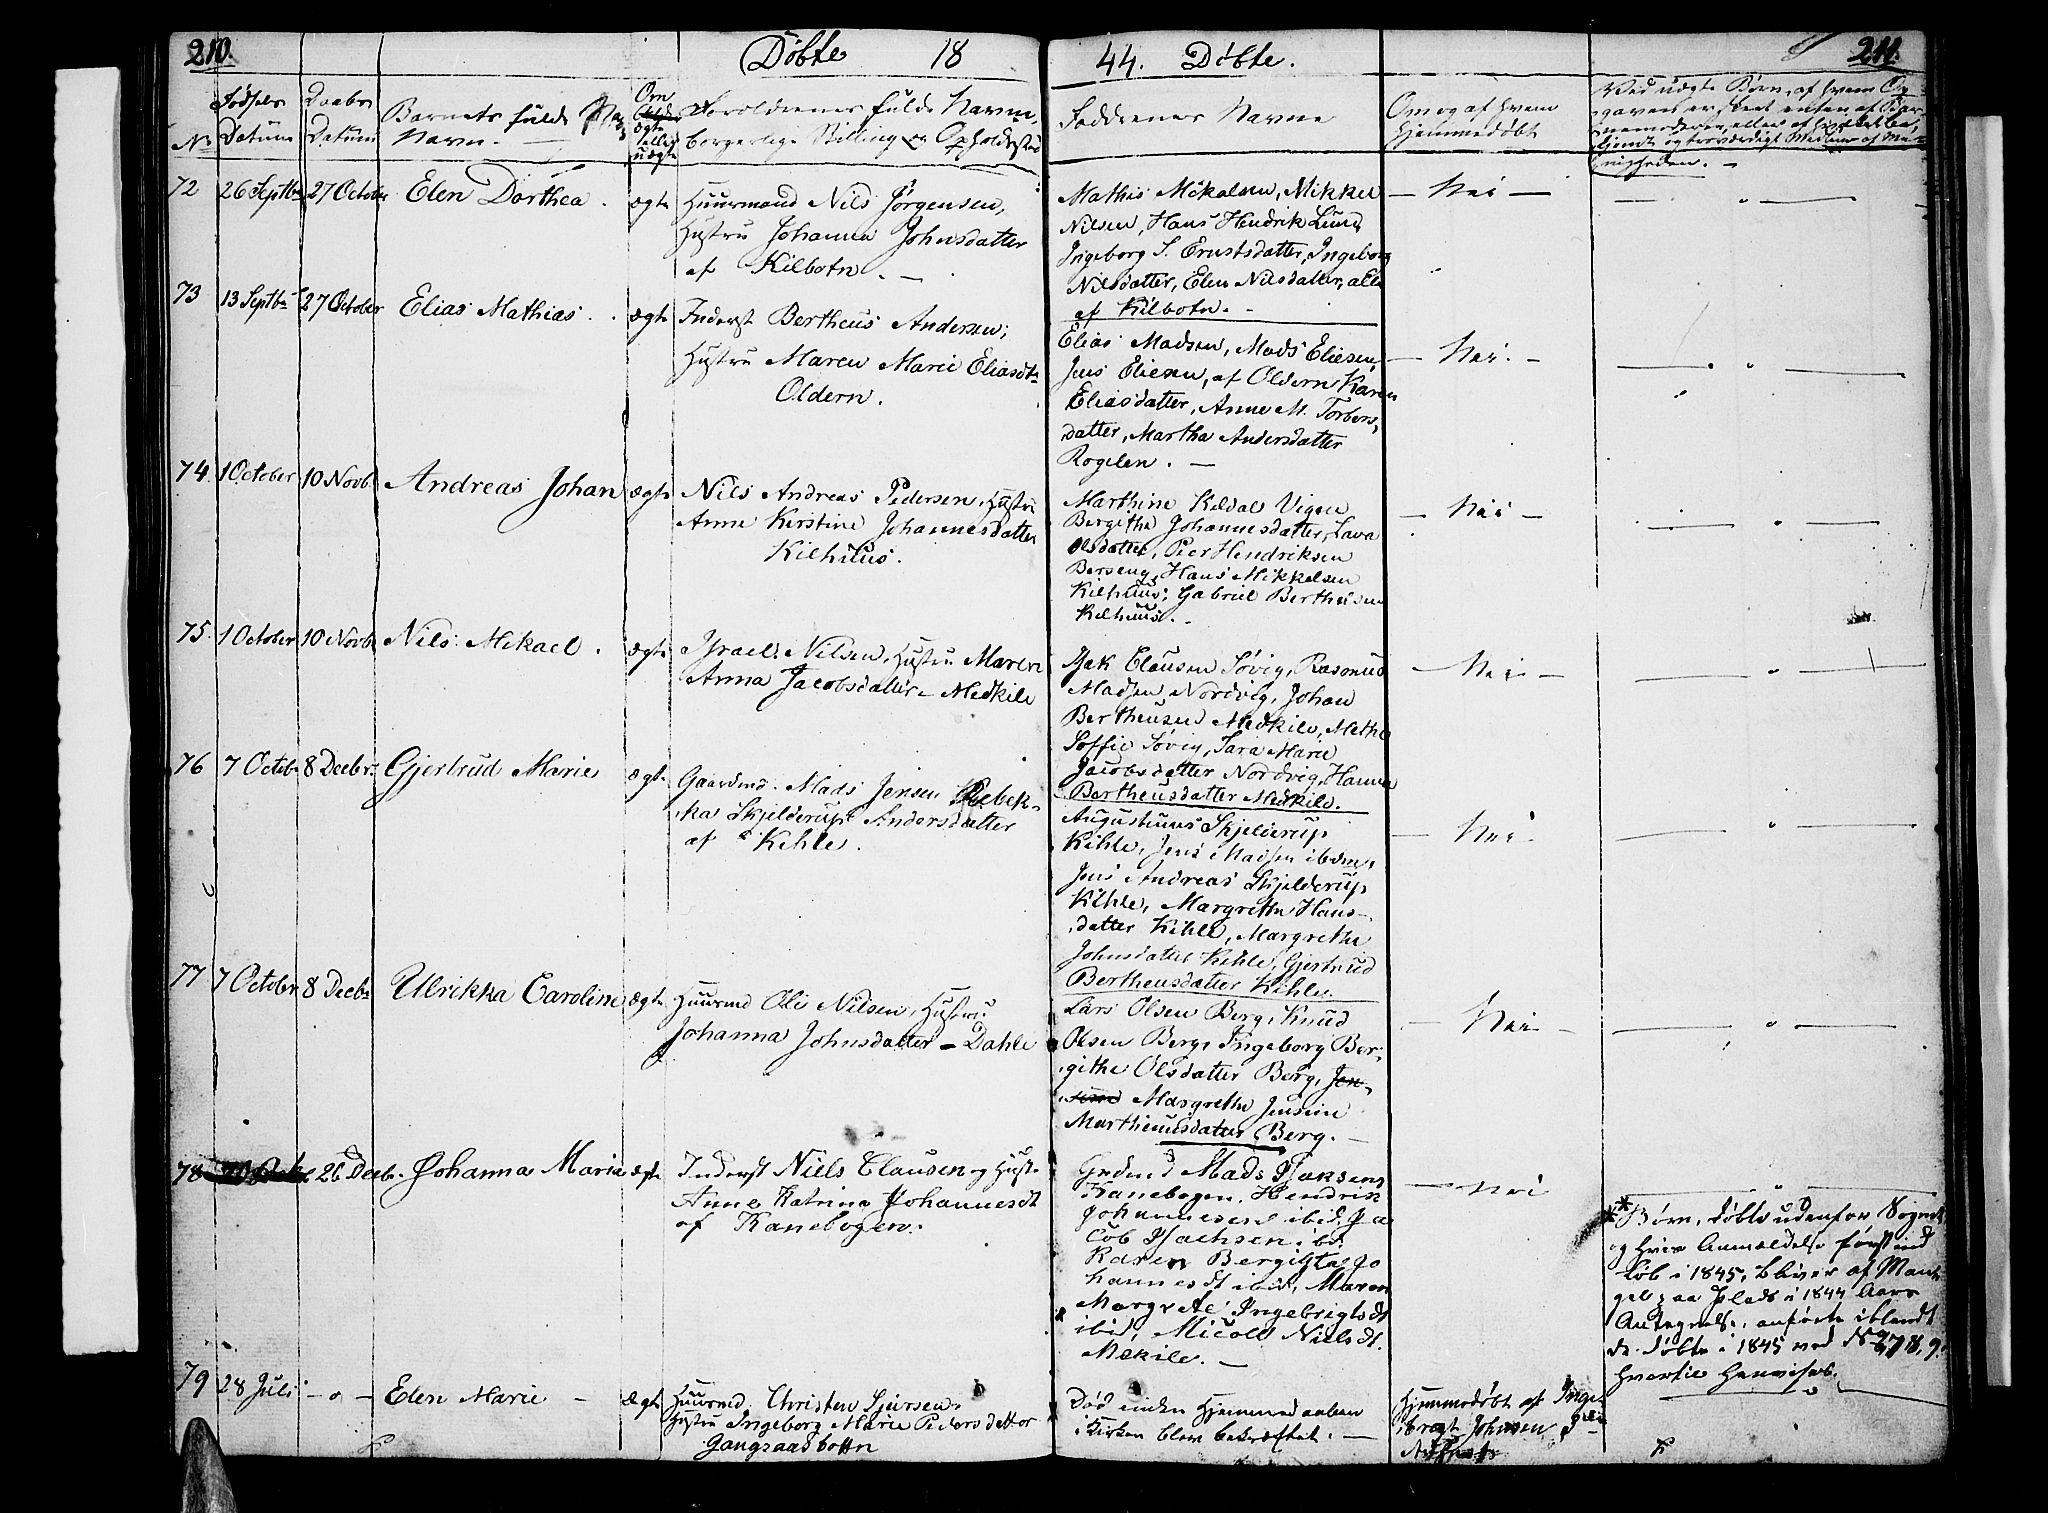 210.
Døbte 18
44. Døbte.
211.
No
Fødsels Datum
Daabs Datum
Barnets fulde Navn.
Om ægte eller uægte
Forældrenes fulde Navne,
borgerlige Stilling og Opholdssted
Faddernes Navne
Om og af hvem
hjemmedøbt
Ved uægte Børn, af hvem Op
72 26 Septbr 27 October Elen Dorthea. ægte Huusmand Nils Jørgensen,
Hustru Johanna Johnsdatter
af Kilbotn.
Mathis Mikalsen, Mikkel
Nilsen, Hans Hendrik Lund,
Ingeborg S. Ernstsdatter, Ingeborg
Nilsdatter, Elen Nilsdatter, alle
af Kilbotn.
— Nei —
73 13 Septbr 27 October Elias Mathias. ægte Inderst Bertheus Andersen,
Hustru Maren Marie Eliasdtr
Oldern.
Elias Madsen, Mads Eliesen,
Jens Eliesen, af Oldern Karen
Eliasdatter, Anne M. Torbers,
datter, Martha Andersdatter
Rogelen. —
— Nei. —
74. 1 October 10 Novb. Andreas Johan ægte Nils Andreas Pedersen, Hustru
Anne Kirstine Johannesdatter
Kilhuus.
Marthine Kildal Vigen
Bergithe Johannesdatter, Lava
Olsdatter, Peer Hendriksen
Berseng, Hans Mikkelsen
Kilhuus, Gabriel Bertheusen
Kilhuus. -
— Nei —
75. 1 October 10 Novb. Nils Mikael. ægte Israel Nilsen, Hustru Maren
Anna Jacobsdatter - Medkile
Isak Clausen Søvig, Rasmus
Madsen Nordvig, Johan
Bertheusen Medkile, Methe
Soffie Søvig, Sara Marie
Jacobsdatter Nordvig, Hanna
Bertheusdatter Medkile.
— Nei —
76 7 Octob. 8 Decbr. Gjertrud Marie ægte Gaardmd. Mads Jensen Rebek-
ka Skjelderup Andersdatter
af Kihle.
Augustinus Skjelderup
Kihle, Jens Madsen ibdm,
Jens Andreas Skjelderup
Kihle, Margrethe Hans-
datter Kihle, Margrethe
Johnsdatter Kihle, Gjertrud
Bertheusdatter Kihle.
— Nei
77 7 October 8 Decbr Ulrikka Caroline ægte Huusmd Ole Nilsen, Hustru
Johanna Johnsdatter - Dahle
Lars Olsen Berg, Knud
Olsen Berg, Ingeborg Ber-
githe Olsdatter Berg, Jen-
sine Margrethe Jensine
Martheusdatter Berg. —
— Nei —
78 26 Decbr. Johanna Maria ægte Inderst Niels Clausen og Hust.
Anne Katrina Johannesdt
af Kanebogen.
Grdmd Mads Isaksen
Kanebogen, Hendrik
Johannesen ibid. Ja
cob Isachsen ibd.
Karen Bergitta Jo
hannesdt ibid, Maren
Margrete Ingebrigtsdt
ibid, Nicoll Nielsdt.
Mekile. —
— Nei
** Børn, døbte udenfor Sognet
og hvis Anmeldelse først ind
løb i 1845, bliver af Mang
gel paa Plads i 1844 Aars
Antegnelse, anførte iblandt
de døbte i 1845 ved No 7, 8, 9,
hvortil henvises.
79 28 Juli — o — Elen Marie — ægte Huusmd. Christen Sjursen,
Hustru Ingeborg Marie Pedersdatter
Gangsaasbottn
Død inden Hjemmedaaben
i Kirken blev bekræftet. —
Hjemmedøbt af Inge
brigt Johnsen